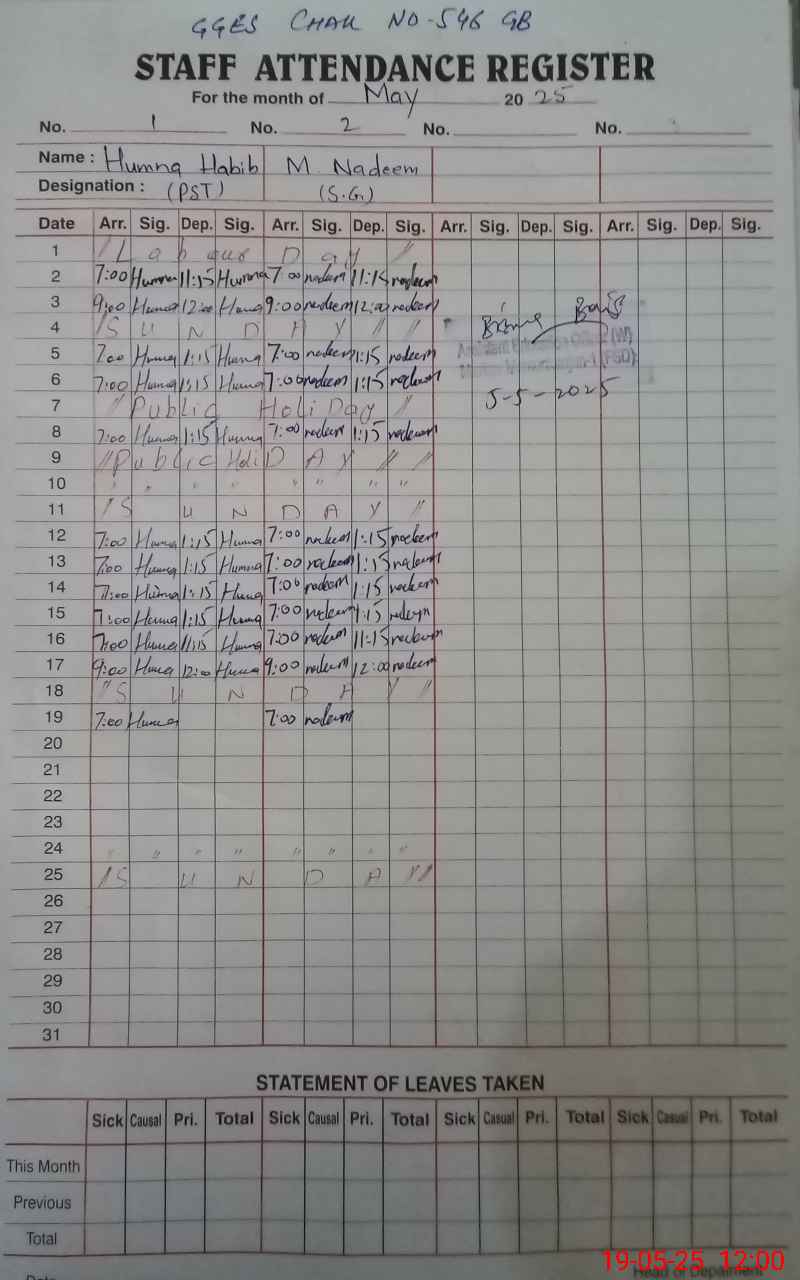 GGES CHAK NO-546 GB
STAFF ATTENDANCE REGISTER
For the month of May 2025
No. 1 No. 2 No. No.
Name : Humna Habib M. Nadeem
Designation : (PST) (S.G.)
Date Arr. Sig. Dep. Sig. Arr. Sig. Dep. Sig. Arr. Sig. Dep. Sig. Arr. Sig. Dep. Sig.
1 // Labour Day //
2 7:00 Humna 11:15 Humna 7:00 nadeem 11:15 nadeem
3 9:00 Humna 12:00 Humna 9:00 nadeem 12:00 nadeem
4 // SUNDAY // //
5 7:00 Humna 1:15 Humna 7:00 nadeem 1:15 nadeem
6 7:00 Humna 1:15 Humna 7:00 nadeem 1:15 nadeem
5-5-2025
7 // Public HoliDay //
8 7:00 Humna 1:15 Humna 7:00 nadeem 1:15 nadeem
9 // Public HoliDAY // //
10 " " " " " " " "
11 // SUNDAY //
12 7:00 Humna 1:15 Humna 7:00 nadeem 1:15 nadeem
13 7:00 Humna 1:15 Humna 7:00 nadeem 1:15 nadeem
14 7:00 Humna 1:15 Humna 7:00 nadeem 1:15 nadeem
15 7:00 Humna 1:15 Humna 7:00 nadeem 1:15 nadeem
16 7:00 Humna 11:15 Humna 7:00 nadeem 11:15 nadeem
17 9:00 Humna 12:00 Humna 9:00 nadeem 12:00 nadeem
18 // SUNDAY //
19 7:00 Humna 7:00 nadeem
20
21
22
23
24 " " " " " " " "
25 // SUNDAY //
26
27
28
29
30
31
STATEMENT OF LEAVES TAKEN
Sick Causal Pri. Total Sick Causal Pri. Total Sick Casual Pri. Total Sick Casual Pri. Total
This Month
Previous
Total
19-05-25 12:00
Date Head of Department